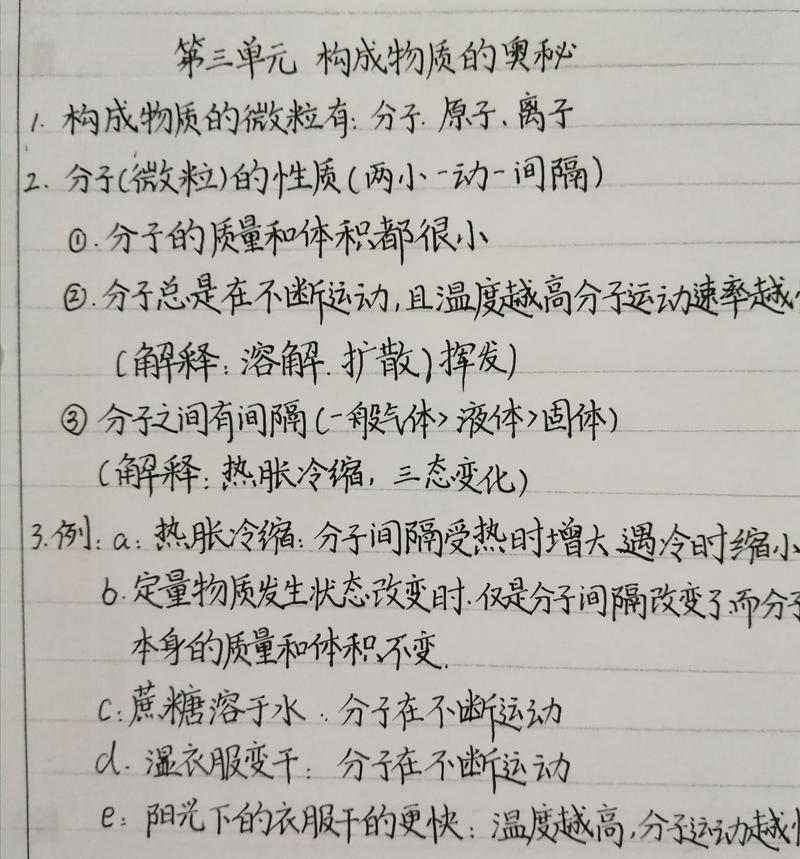 第三单元 构成物质的奥秘
1. 构成物质的微粒有: 分子. 原子、离子
2. 分子(微粒)的性质(两小一动一间隔)
①. 分子的质量和体积都很小
②. 分子总是在不断运动,且温度越高分子运动速率越
(解释: 溶解. 扩散、挥发)
③ 分子之间有间隔(一般气体>液体>固体)
(解释: 热胀冷缩, 三态变化)
3. 例: a: 热胀冷缩: 分子间隔受热时增大、遇冷时缩小
b. 定量物质发生状态改变时. 仅是分子间隔改变了,而分子
本身的质量和体积不变.
c: 蔗糖溶于水. 分子在不断运动
d. 湿衣服变干: 分子在不断运动
e: 阳光下的衣服干的更快: 温度越高,分子运动越